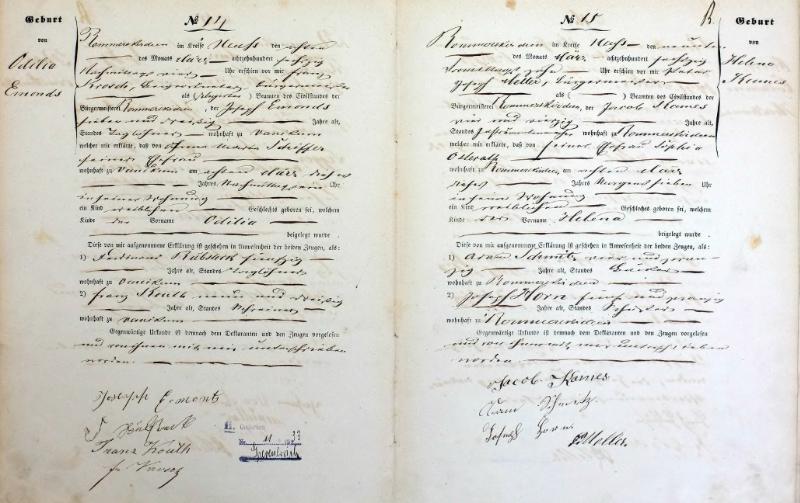 Geburt
von
Odilia
Emonds
№ 14
Rommerskirchen im Kreise Neuss den achten
des Monats März achtzehnhundert sechzig
Nachmittags vier Uhr erschien vor mir Franz
Bürgermeister
als Beamten des Civilstandes der
Bürgermeisterei Rommerskirchen, der Joseph Emonds
sieben und dreißig Jahre alt,
Standes Taglöhner wohnhaft zu Vanikum
welcher mir erklärte, daß von Anna Maria
seiner Ehefrau
wohnhaft zu Vanikum am achten März dieses
Jahres Nachmittags ein Uhr
in seiner Wohnung
ein Kind weiblichen Geschlechts geboren sei, welchem
Kinde der Vorname Odilia
beigelegt wurde
Diese von mir aufgenommene Erklärung ist geschehen in Anwesenheit der beiden Zeugen, als:
1) Ferdinand fünfzig
Jahre alt, Standes Taglöhner
wohnhaft zu Vanikum
2) Franz Kouth neun und dreißig
Jahre alt, Standes Schreiner
wohnhaft zu Vanikum
Gegenwärtige Urkunde ist demnach dem Deklaranten und den Zeugen vorgelesen
und von ihnen mit mir unterschrieben
worden
Joseph Emonts
Franz Kouth
№ 15
B.
Geburt
von
Helena
Kames
Rommerskirchen im Kreise Neuss den neunten
des Monats März achtzehnhundert sechzig
Vormittags zehn Uhr erschien vor mir Peter
Joseph Moller, Bürgermeister
als Beamten des Civilstandes der
Bürgermeisterei Rommerskirchen, der Jacob Kames
vier und vierzig Jahre alt,
Standes wohnhaft zu Rommerskirchen
welcher mir erklärte, daß von seiner Ehefrau Sophia
Osterath
wohnhaft zu Rommerskirchen, am achten März
dieses Jahres Morgens sieben Uhr
in seiner Wohnung
ein Kind weiblichen Geschlechts geboren sei, welchem
Kinde der Vorname Helena
beigelegt wurde
Diese von mir aufgenommene Erklärung ist geschehen in Anwesenheit der beiden Zeugen, als:
1) Adam Schmitz vier und zwan-
zig Jahre alt, Standes Bäcker
wohnhaft zu Rommerskirchen
2) Joseph Horn fünf und zwanzig
Jahre alt, Standes Schuster
wohnhaft zu Rommerskirchen
Gegenwärtige Urkunde ist demnach dem Deklaranten und den Zeugen vorgelesen
und von ihnen mit mir unterschrieben
worden
Jacob Kames
Adam Schmitz
Joseph Horn
Moller